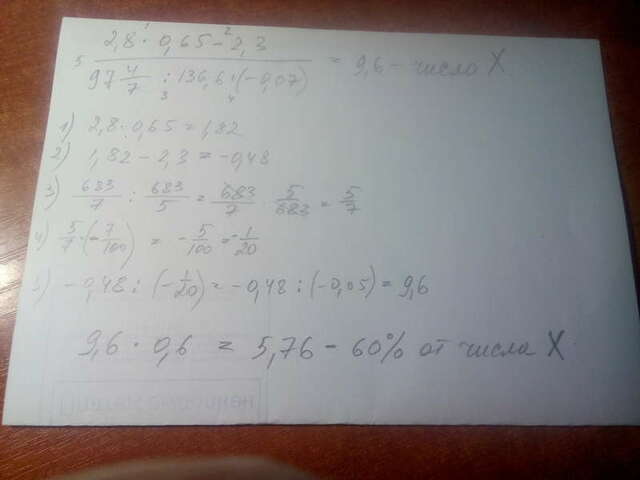 2,8 · 0,65 - 2,3
97 4/7 : 136,6 · (-0,07) = 9,6 - число X
1) 2,8 · 0,65 = 1,82
2) 1,82 - 2,3 = -0,48
3) 683/7 : 683/5 = 683/7 · 5/683 = 5/7
4) 5/7 · (-7/100) = -5/100 = -1/20
5) -0,48 : (-1/20) = -0,48 : (-0,05) = 9,6
9,6 · 0,6 = 5,76 - 60% от числа X